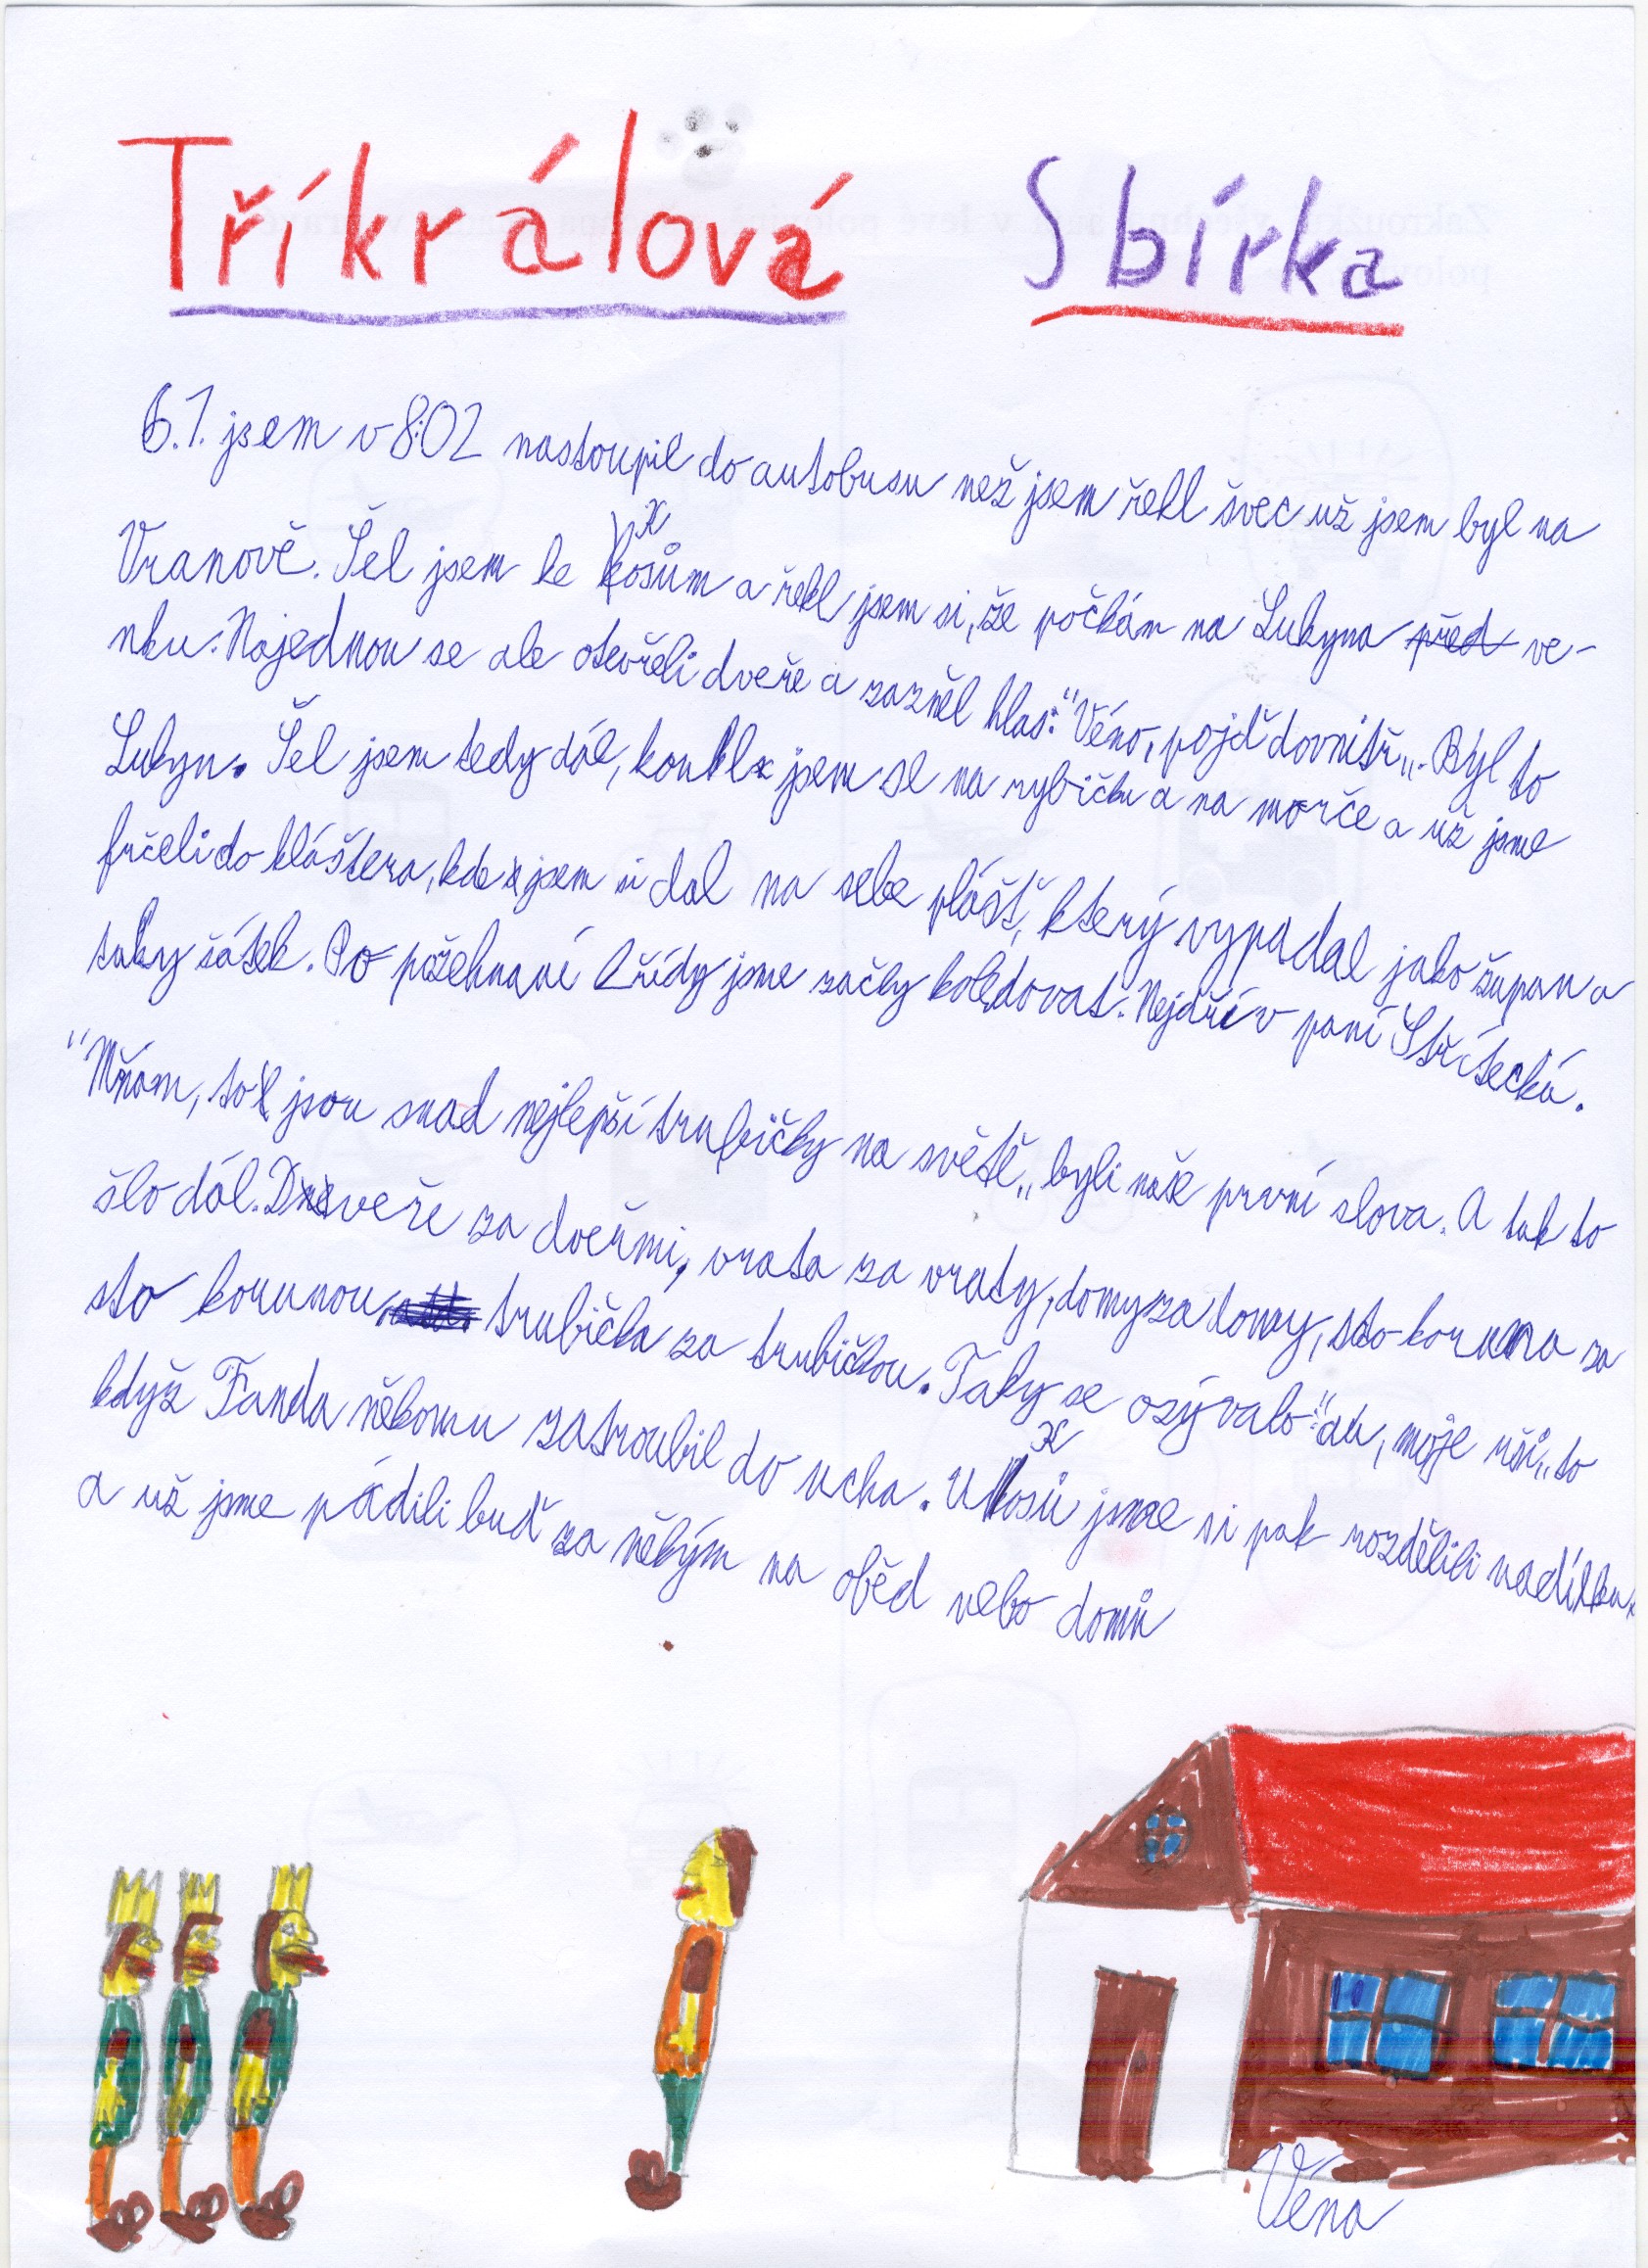 Tříkrálová Sbírka
6.1. jsem v 8:02 nastoupil do autobusu než jsem řekl švec už jsem byl na
Vranově. Šel jsem ke Kosům a řekl jsem si, že počkám na Lukyna před ve-
nku. Najednou se ale otevřeli dveře a zazněl hlas: "Véno, pojď dovnitř„. Byl to
Lukyn. Šel jsem tedy dál, koukl jsem se na rybičku a na morče a už jsme
frčeli do kláštera, kde jsem si dal na sebe plášť, který vypadal jako župan a
taky šátek. Po požehnaní křídy jsme začly koledovat. Nejdřív paní Střítecká.
"Mňam, to jsou snad nejlepší trubičky na světě„ byli naše první slova. A tak to
šlo dál. Dveře za dveřmi, vrata za vraty, domy za domy, sto koruna za
sto korunou, trubička za trubičkou. Taky se ozývalo: "au, moje uši„ to
když Fanda někomu zatroubil do ucha. U Kosů jsme si pak rozdělili nadílku
a už jsme pádili buď za někým na oběd nebo domů
Véna